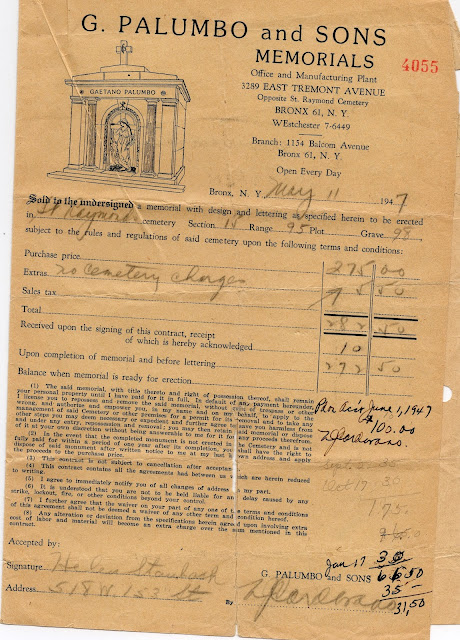 G. PALUMBO and SONS
MEMORIALS
4055
Office and Manufacturing Plant
3289 EAST TREMONT AVENUE
Opposite St. Raymond Cemetery
BRONX 61, N. Y.
WEstchester 7-6449
Branch: 1154 Balcom Avenue
Bronx 61, N. Y.
Open Every Day
GAETANO PALUMBO
Bronx, N. Y., May 11 1947
Sold to the undersigned a memorial with design and lettering as specified herein to be erected
in St Raymond cemetery Section 14 Range 95 Plot Grave 98
subject to the rules and regulations of said cemetery upon the following terms and conditions:
Purchase price 275 00
Extras no cemetery charges
Sales tax 7 50
Total 282 50
Received upon the signing of this contract, receipt
of which is hereby acknowledged 10
Upon completion of memorial and before lettering 272 50
Balance when memorial is ready for erection
(1) The said memorial, with title thereto and right of possession thereof, shall remain
your personal property until I have paid for it in full. In default of any payment hereunder,
I license you to repossess and remove the said memorial, without claim of trespass or other
wrong, and authorize and empower you, in my name and on my behalf, to apply to the
management of said Cemetery or other premises for a permit for its removal and to take any
other steps you may deem necessary or expedient and further agree to save you harmless from
and under any entry, repossession and removal; you may then retain said memorial or dispose
of it at your own discretion without being liable to me for it or for any proceeds therefrom.
(2) In the event that the completed monument is not erected in the Cemetery and is not
fully paid for within a period of one year after its completion, you shall have the right to
dispose of same after written notice to me at my last known address and apply
the proceeds to the purchase price.
(3) This contract is not subject to cancellation after acceptance.
(4) This contract contains all the agreements had between us which are herein reduced
to writing.
(5) I agree to immediately notify you of all changes of address on my part.
(6) It is understood that you are not to be held liable for any delay caused by any
strike, lockout, fire, or other conditions beyond your control.
(7) I further agree that the waiver on your part of any one of the terms and conditions
of this agreement shall not be deemed a waiver of any other term and condition hereof.
(8) Any alteration or deviation from the specifications herein agreed upon involving extra
cost of labor and material will become an extra charge over the sum mentioned in this
contract.
June 1, 1947
100.00
175
Accepted by:
Signature Helen
Address 518 W. 153 St
Jan 17 35
G. PALUMBO and SONS 66 50
35 -
By 31,50